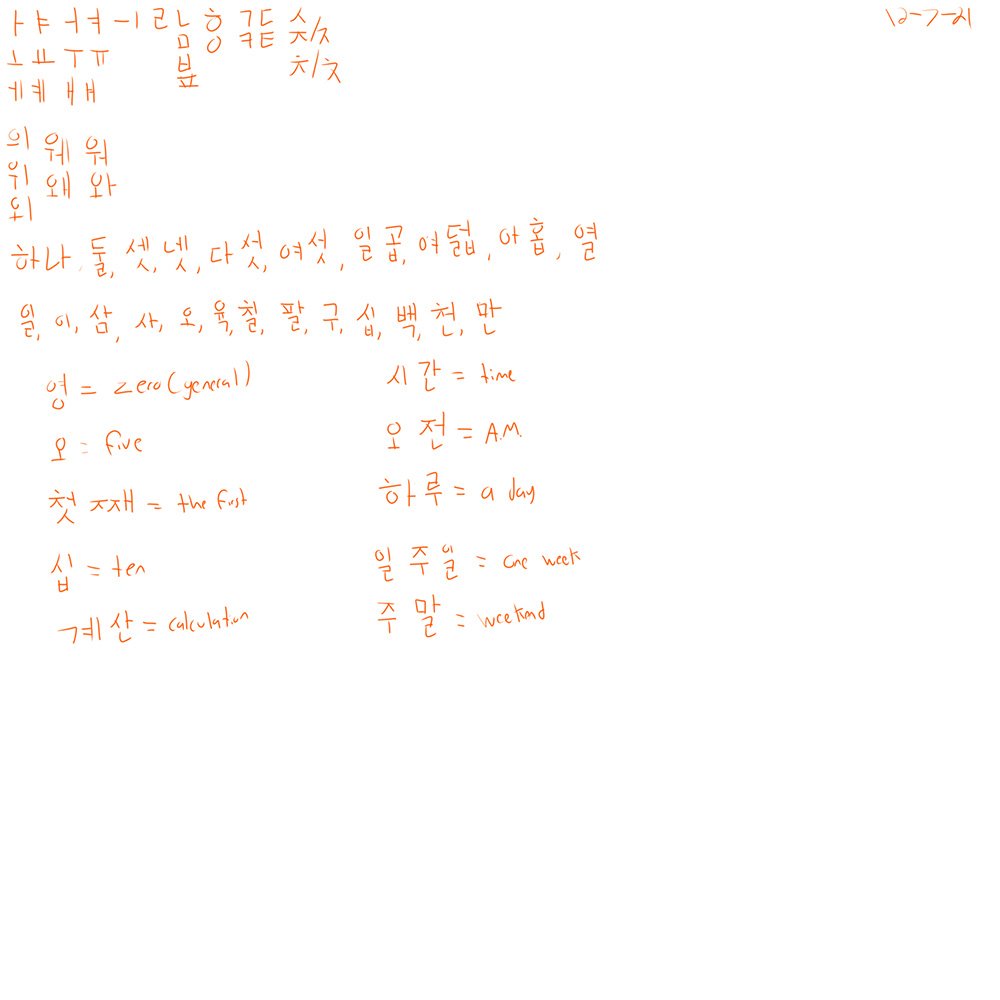 12-7-21
ㅏㅑ ㅓㅕ ㅡㅣ ㄹ ㄴ ㅇ ㄱㄷ ㅅ
ㅁ ㅎ ㅋㅌ ㅈ/ㅈ
ㅗㅛ ㅜㅠ ㅂ ㅊ/ㅊ
ㅍ
ㅔㅖ ㅐㅒ
의 웨 워
위 왜 와
외
하나, 둘, 셋, 넷, 다섯, 여섯, 일곱, 여덟, 아홉, 열
일, 이, 삼, 사, 오, 육, 칠, 팔, 구, 십, 백, 천, 만
영 = zero (general) 시간 = time
오 = five 오전 = A.M.
첫째 = the first 하루 = a day
십 = ten 일주일 = one week
계산 = calculation 주말 = weekend